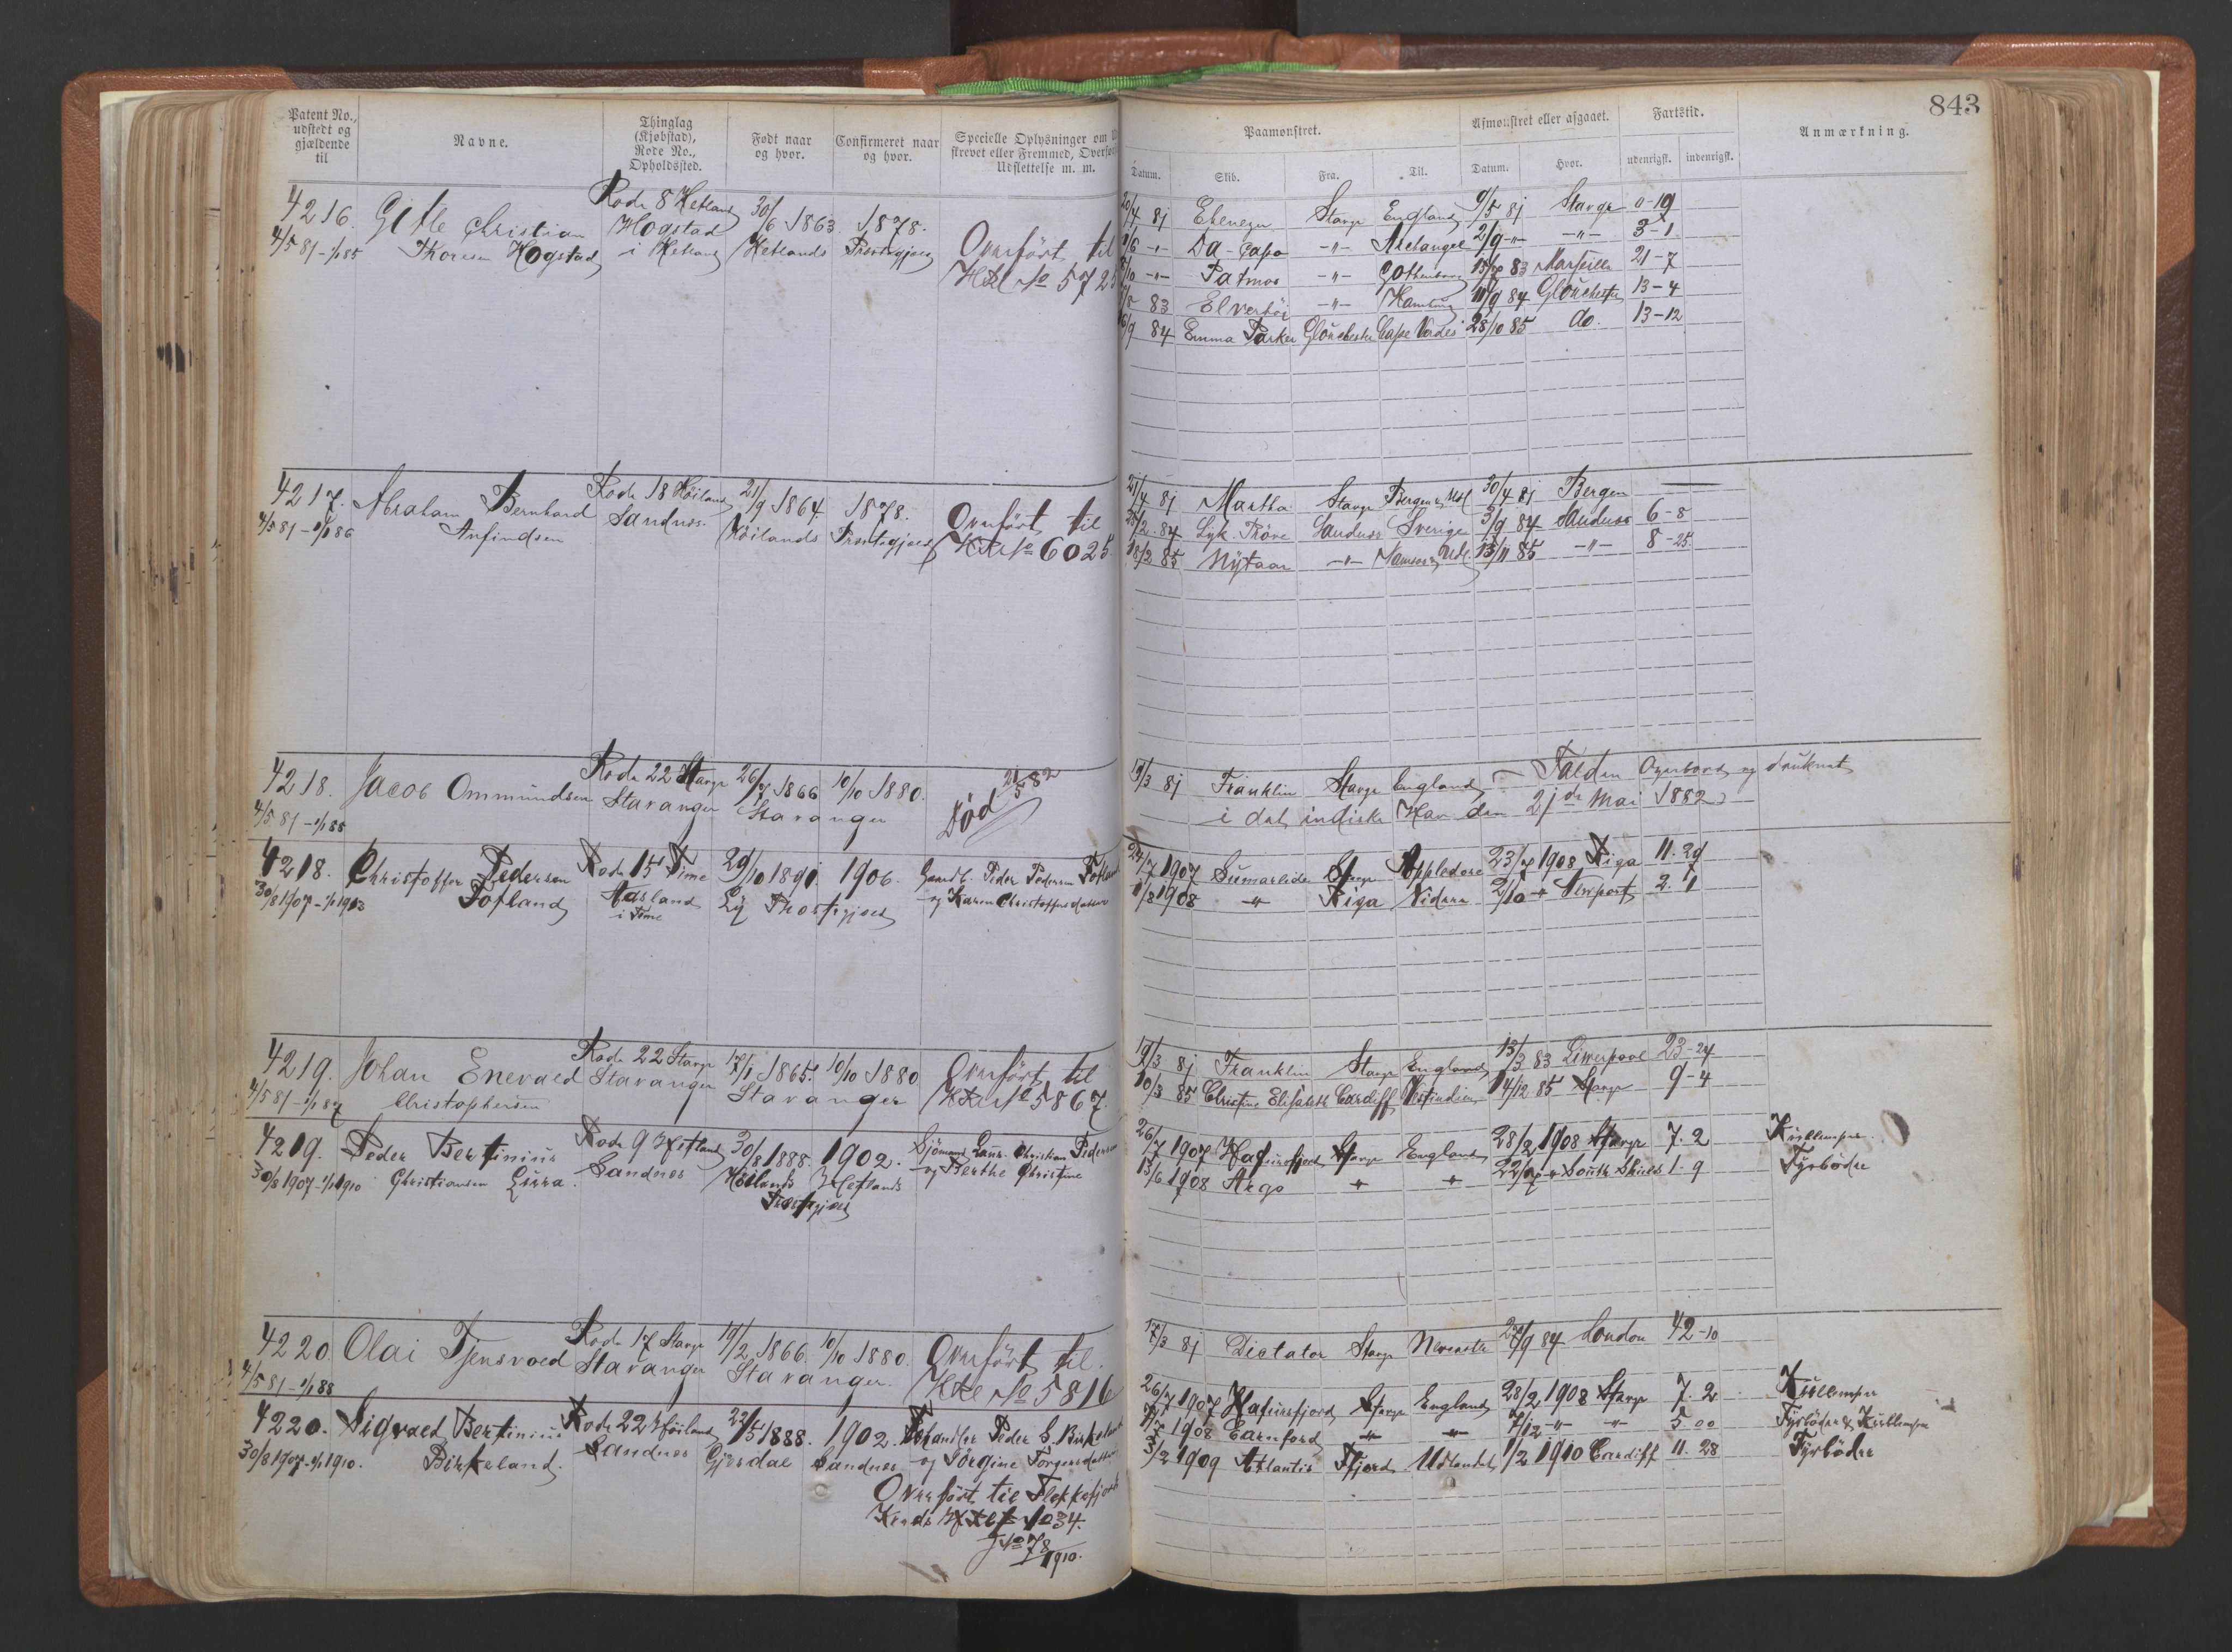 843
Patent No., udstedt og gjældende til
Navne.
Thinglag (Kjøbstad), Rode No., Opholdssted.
Født naar og hvor.
Confirmeret naar og hvor.
Specielle Oplysninger om
strevet eller Fremmed, Overfø
Udslettelse m. m.
Paamønstret.
Afmønstret eller afgaaet.
Fartstid.
Anmærkning.
Datum. Skib. Fra. Til. Datum. Hvor. udenrigsk. indenrigsk.
4216. Gitle Christian Rode 8 Hetland 30/6 1863. 1878. Overført til
4/5 81 - 1/1 85 Thorsen Hogstad Hogstad i Hetland Hetlands Præstegjæld No 572
20/4 81 Ebenezer Stavgr England 9/5 81 Stavgr 0-19
1/6 -"- Da-Capo -"- Archangel 2/9 -"- -"- 3-1
/10 -"- Patmos -"- Gothenborg 83 Marseille 21-7
/5 83 -"- Hamburg /9 84 Glouchester 13-4
/9 84 Emma Parker Glouchester Cape Verdes 28/10 85 do. 13-12
4217. Abraham Bernhard Rode 18 Høiland 21/9 1864. 1878. Overført til
4/5 81 - 1/1 86 Anfindsen Sandnes. Høilands Præstegjæld No 6025
21/4 81 Martha Stavgr Bergen & Udl 30/4 81 Bergen
/2 84 Lyk. Prøve Sandnes Sverige 3/9 84 Sandnes 6-8
18/2 85 Nytaar -"- Udl. 13/11 85 -"- 8-25.
4218. Jacob Ommundsen Rode 22 Stavgr 26/7 1866 10/10 1880. Død 21/5 82
4/5 81 - 1/1 88 Stavanger Stavanger
19/3 81 Franklin Stavgr England - Falden Overbord og druknet
i det indiske Hav den 21de Mai 1882
4218. Christoffer Pedersen Rode 15 Time 29/10 1891. 1906. Gaardb. Peder Pedersen
30/8 1907 - 1/1 1913 Fotland Aasland i Time Ly Præstegjæld og Karen Christoffersdatter
24/7 1907 Sumarlide Stavgr Appledore 23/7 1908 Riga 11. 29
1/8 1908 -"- Riga 2/10 -"- Newport 2. 1
4219. Johan Enevald Rode 22 Stavgr 17/1 1865. 10/10 1880. Overført til
4/5 81 - 1/1 87 Christophersen Stavanger Stavanger No 5867.
19/3 81 Franklin Stavgr England 13/3 83 Liverpool 23-24
10/3 85 Christine Elisabeth Cardiff Vestindien 14/12 85 Stavgr 9-4
4219. Peder Bertinius Rode 9 Hetland 30/8 1888. 1902. Sjømand Laur. Christian Pedersen
30/8 1907 - 1/1 1910 Christiansen Lura. Sandnes Høilands Hetlands Præstegjæld og Berthe Christine
26/7 1907 Hafursfjord Stavgr England 28/2 1908 Stavgr 7. 2 Kullemper.
13/6 1908 Argo -"- -"- 22/7 -"- South Shields 1. 9 Fyrbøder
4220. Olai Tjensvold Rode 17 Stavgr 19/2 1866. 10/10 1880. Overført til.
4/5 81 - 1/1 88 Stavanger Stavanger. No 5816
17/3 81 Dictator Stavgr Newcastle 27/9 84 London 42-10
4220. Sigvald Bertinius Rode 22 Høiland 22/5 1888. 1902. Peder S. Birkeland
30/8 1907 - 1/1 1910. Birkeland. Sandnes Gjesdal Sandnes og Jørgine Torgersdatter
Overført til Flekkefjords
Kreds 34.
J No 78/1910.
26/7 1907 Hafursfjord Stavgr England 28/2 1908 Stavgr 7. 2 Kullemper
1908 Earnford -"- -"- 7/12 -"- -"- 5 00 Fyrbøder & Kullemper
3/2 1909 Atlantis Udlandet 1/2 1910 Cardiff 11. 28 Fyrbøder